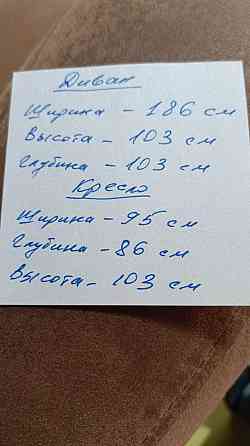 Диван
Ширина - 186 см
Высота - 103 см
Глубина - 103 см
Кресло
Ширина - 95 см
Глубина - 86 см
Высота - 103 см